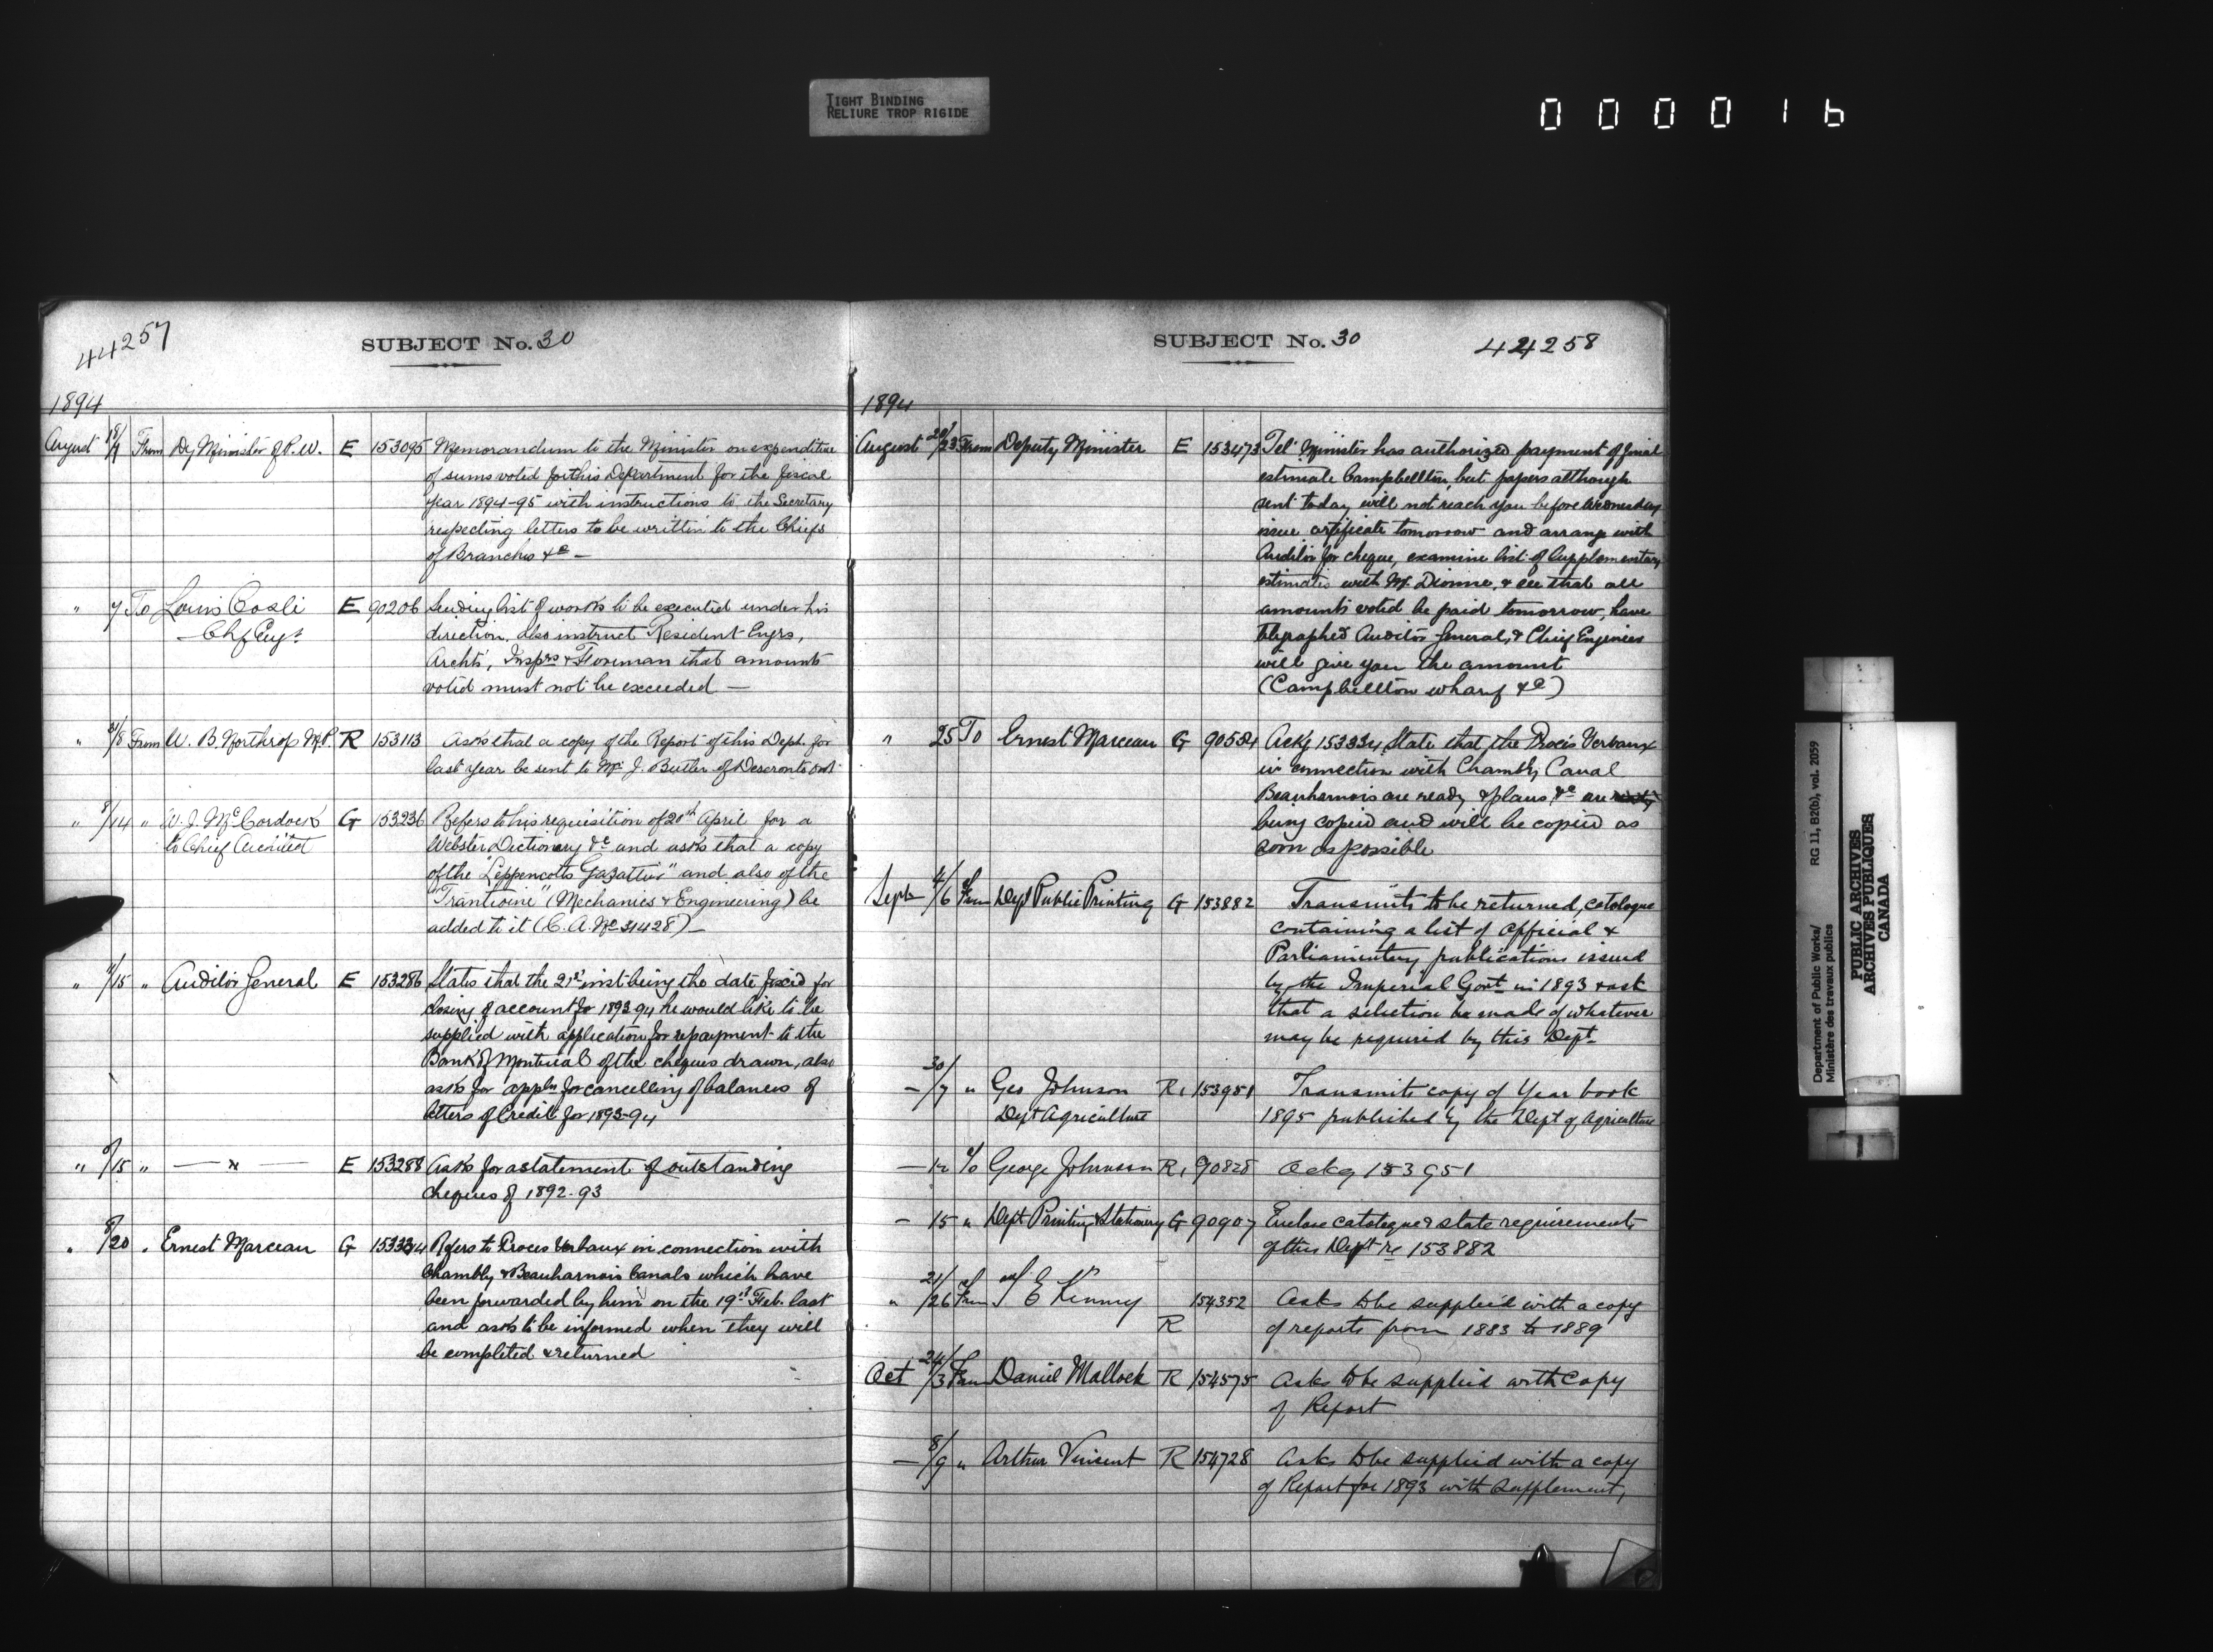 TIGHT BINDING
RELIURE TROP RIGIDE
0 0 0 0 1 6
44257
SUBJECT No. 30
1894
August From Dy Minister of P.W. E 153095 Memorandum to the Minister on expenditure
of sums voted for this Department for the fiscal
year 1894-95 with instructions to the Secretary
respecting letters to be written to the Chiefs
of Branches &c —
" 7 To Louis Coste E 90206 Sending list of works to be executed under his
Chf Engr.
direction, also instruct Resident Engrs,
Archts', Insprs & Foreman that amounts
voted must not be exceeded —
" /8 From W. B. Northrop M.P. R 153113 Asks that a copy of the Report of this Dept. for
last year be sent to Mr J. Butler of Deseronto Ont.
" 8/14 " W. J. McCordock G 153236 Refers to his requisition of 20th April for a
to Chief Architect
Webster Dictionary &c and asks that a copy
of the "Leppencotts Gazatteir" and also of the
(Mechanics & Engineering) be
added to it (C. A. No 31428) —
" /15 " Auditor General E 153286 States that the 21st inst being the date fixed for
closing of account for 1893-94 he would like to be
supplied with application for repayment to the
Bank of Montreal of the cheques drawn, also
asks for appln for cancelling of balances of
letters of Credit for 1893-94
" 8/15 " — " — E 153288 Asks for a statement of outstanding
cheques of 1892-93
" 8/20 " Ernest Marceau G 153334 Refers to Proces Verbaux in connection with
Chambly & Beauharnois Canals which have
been forwarded by him on the 19th Feb. last
and asks to be informed when they will
be completed & returned
SUBJECT No. 30
44258
1894
August 20/23 From Deputy Minister E 153473 Tel' Minister has authorized payment of final
estimate Campbellton, but papers although
sent today will not reach you before Wednesday
issue certificate tomorrow and arrange with
Auditor for cheque, examine list of Supplementary
estimates with Mr. Dionne, & see that all
amounts voted be paid tomorrow, have
telegraphed Auditor General, & Chief Engineer
will give you the amount
(Campbellton wharf &c)
" 25 To Ernest Marceau G 90534 Ackg 153334, State that the Procès Verbaux
in connection with Chambly Canal
Beauharnois are ready & plans, &c are
being copied and will be copied as
soon as possible
Sept 4/6 From Dept Public Printing G 153882 Transmits to be returned, catologue
containing a list of official &
Parliamentary publications issued
by the Imperial Govt in 1893 & ask
that a selection be made of whatever
may be required by this Dept
— 30/7 " Geo Johnson R. 153951 Transmits copy of Year book
Dept Agriculture
1895 published by the Dept of Agriculture
— 12 To George Johnson R. 90828 Ackg 153951
— 15 " Dept Printing & Stationery G 90907 Enclose catalogue & state requirements
of this Dept re 153882
" 21/26 From E Kenny R 154352 Asks to be supplied with a copy
of reports from 1883 to 1889
Oct 24/3 From Daniel Mallock R 154575 Asks to be supplied with Copy
of Report
— 8/9 " Arthur Vincent R 154728 Asks to be supplied with a copy
of Report for 1893 with Supplement,
Department of Public Works/
Ministère des travaux publics
RG 11, B2(b), vol. 2059
PUBLIC ARCHIVES
ARCHIVES PUBLIQUES
CANADA